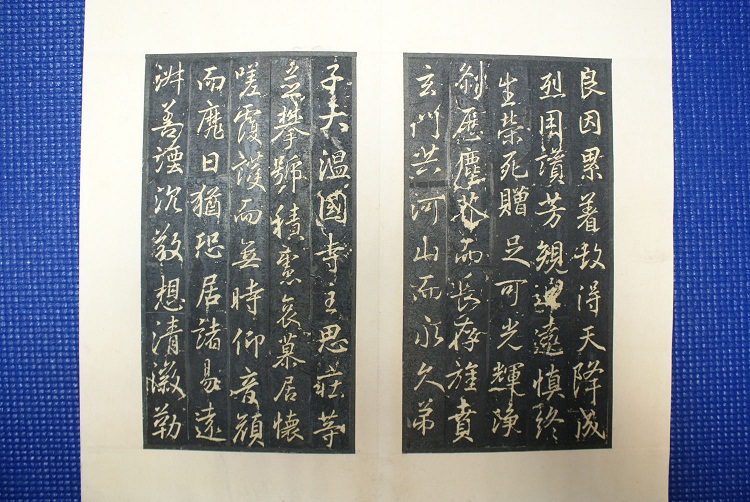 良因累著故得天降成
烈用讃芳規追遠慎終
生榮死贈足可光輝淨
剎歷塵芥而長存旌賁
玄門共河山而永久弟
子大温國寺主思莊等
並攀號積慮哀慕居懷
嗟覆護而無時仰音顏
而靡日猶恐居諸易遠
淋善湮沉敬想清徽勒